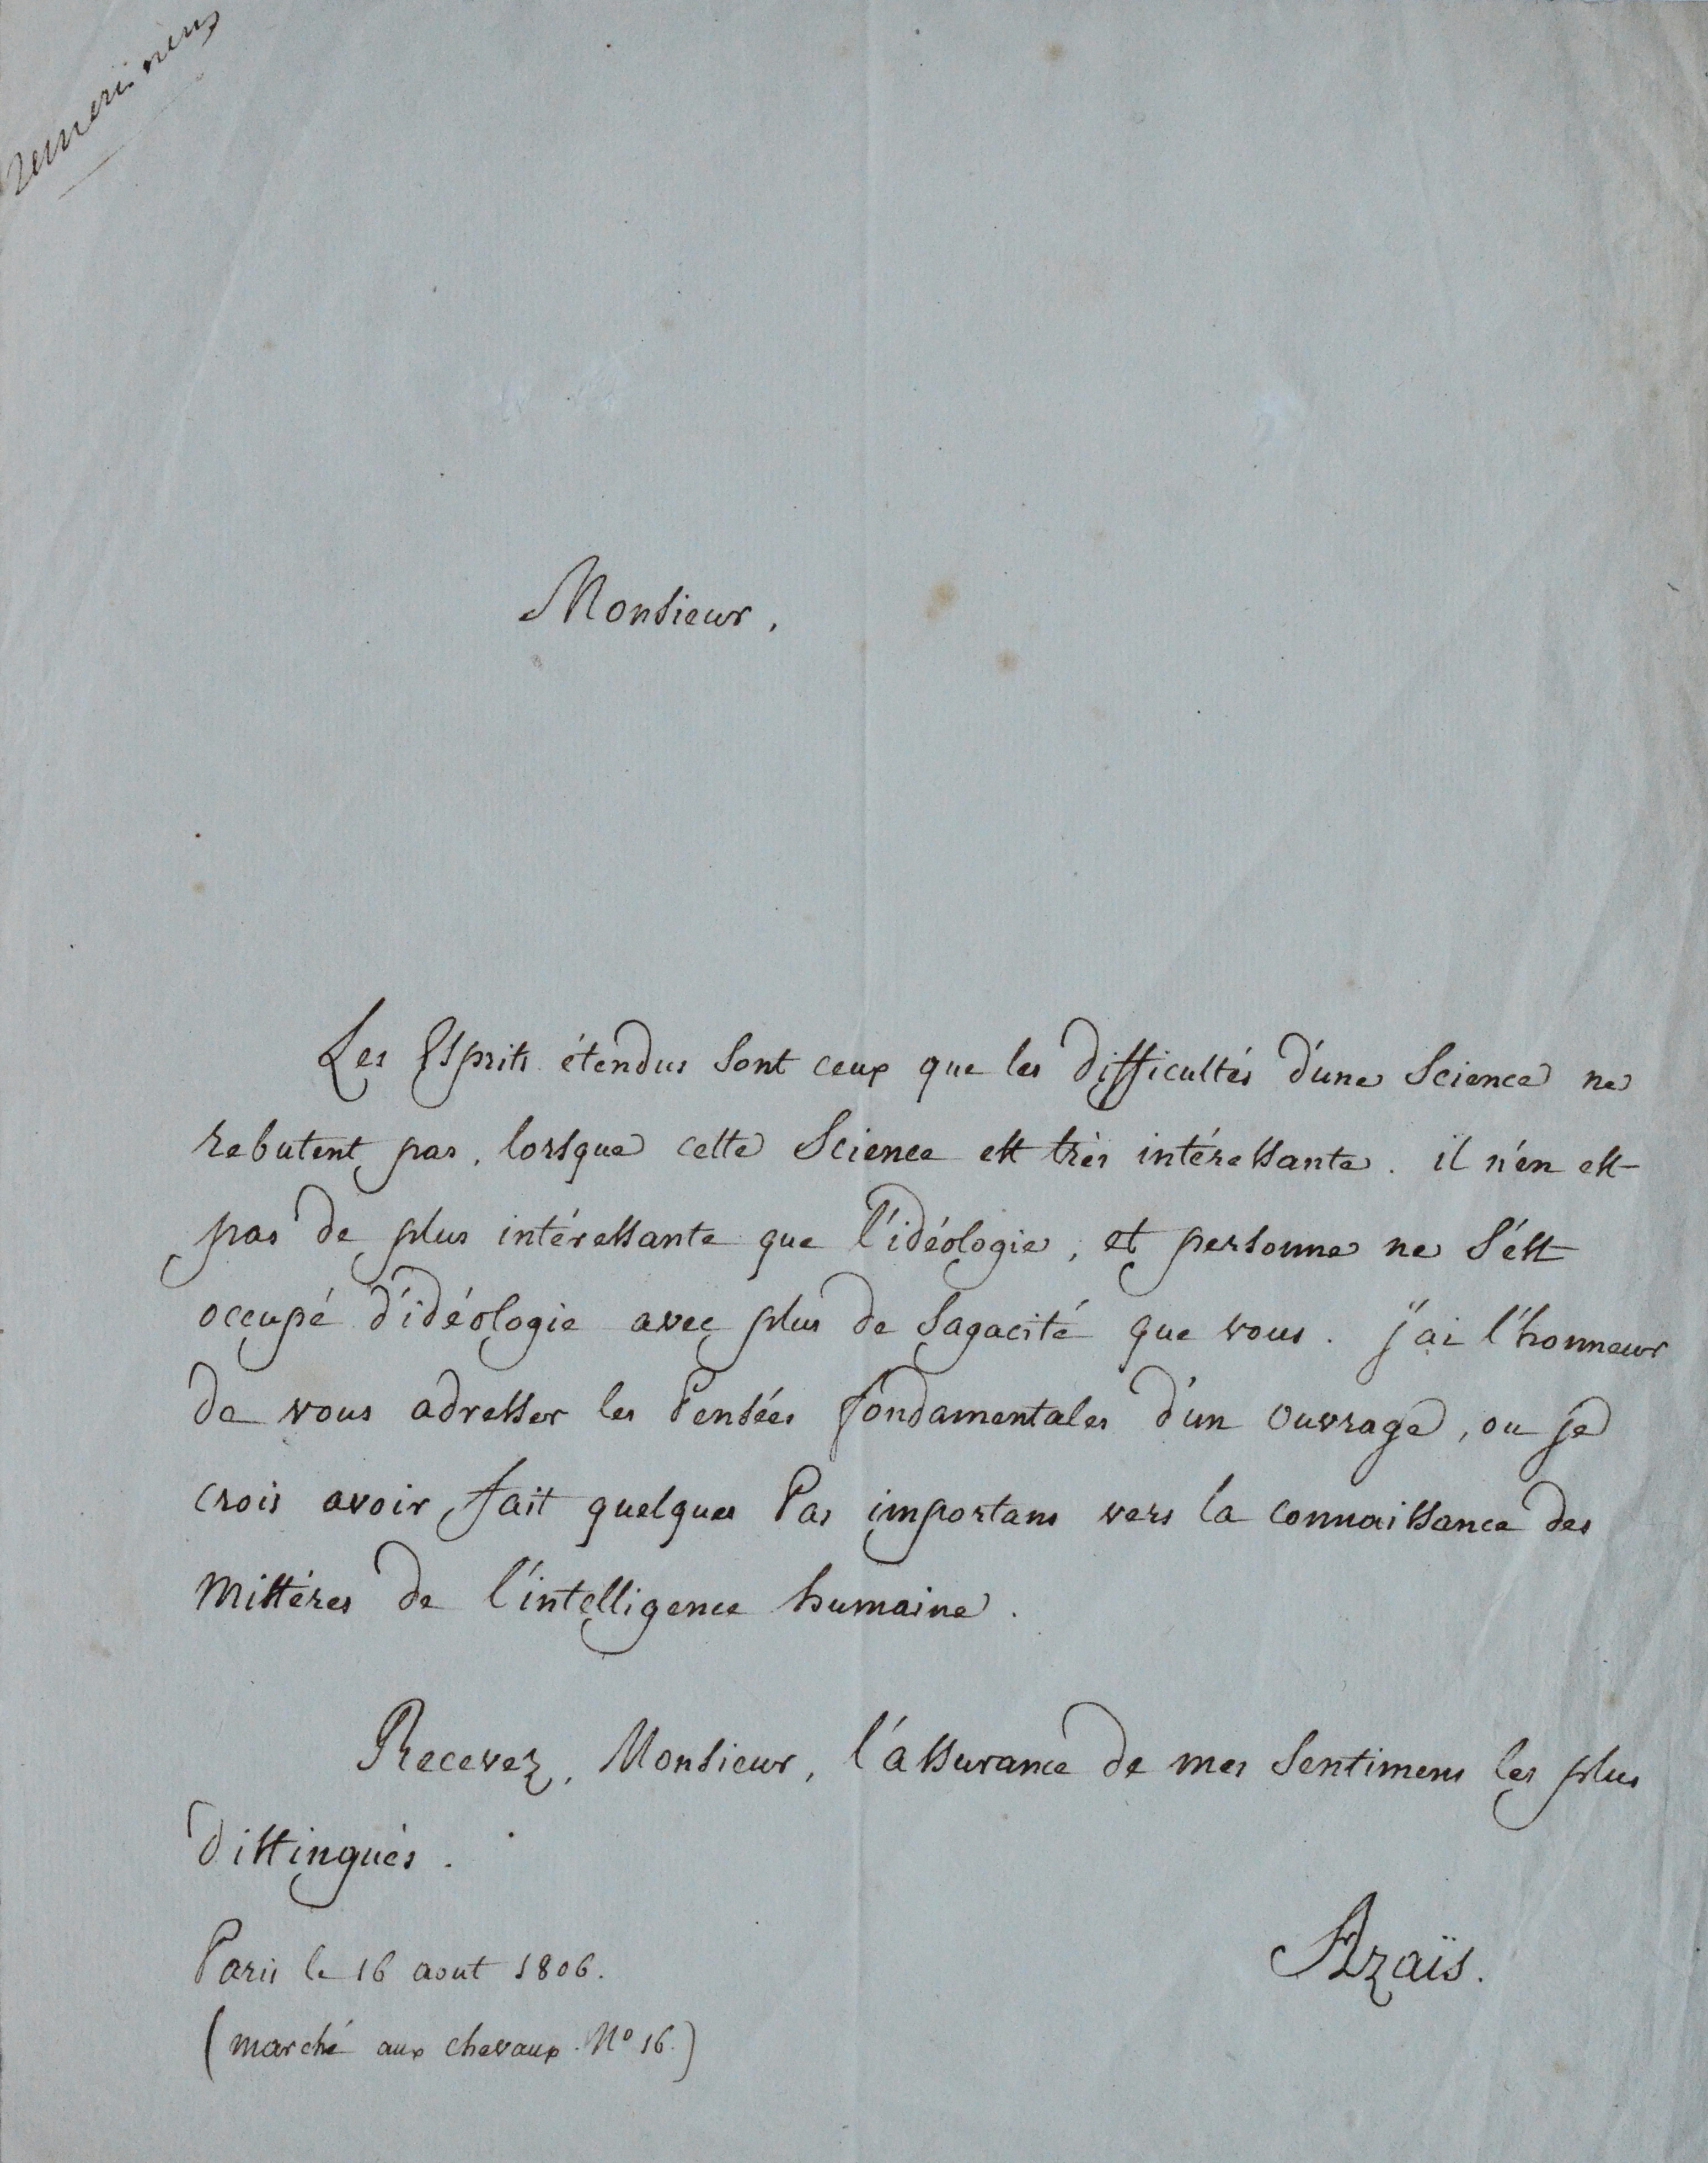 Monsieur,
Les Esprits étendus sont ceux que les difficultés d'une science ne
rebutent pas, lorsque cette science est très intéressante. il n'en est
pas de plus intéressante que l'idéologie, et personne ne s'est
occupé d'idéologie avec plus de sagacité que vous. j'ai l'honneur
de vous adresser les Pensées fondamentales d'un ouvrage, ou je
crois avoir fait quelques Pas importans vers la connaissance des
mistéres de l'intelligence humaine.
Recevez, Monsieur, l'assurance de mes sentimens les plus
distingués.
Azaïs.
Paris le 16 aout 1806.
(marché aux chevaux. N° 16.)